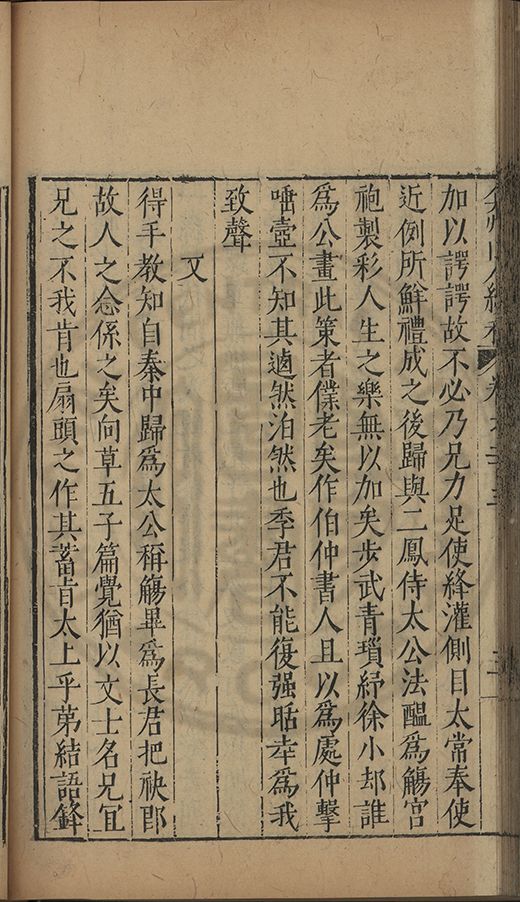 弇州山人續稿 卷之二百三
加以諤諤故不必乃兄力足使絳灌側目太常奉使
近例所鮮禮成之後歸與二鳳侍太公法醞爲觴宮
袍製彩人生之樂無以加矣步武青瑣紓徐小却誰
爲公畫此策者僕老矣作伯仲書人且以爲處仲擊
唾壺不知其適然泊然也季君不能復强聒幸爲我
致聲
又
得手教知自秦中歸爲太公稱觴畢爲長君把袂郎
故人之念係之矣向草五子篇覺猶以文士名兄冝
兄之不我肯也扇頭之作其蓄旨太上乎苐結語鋒